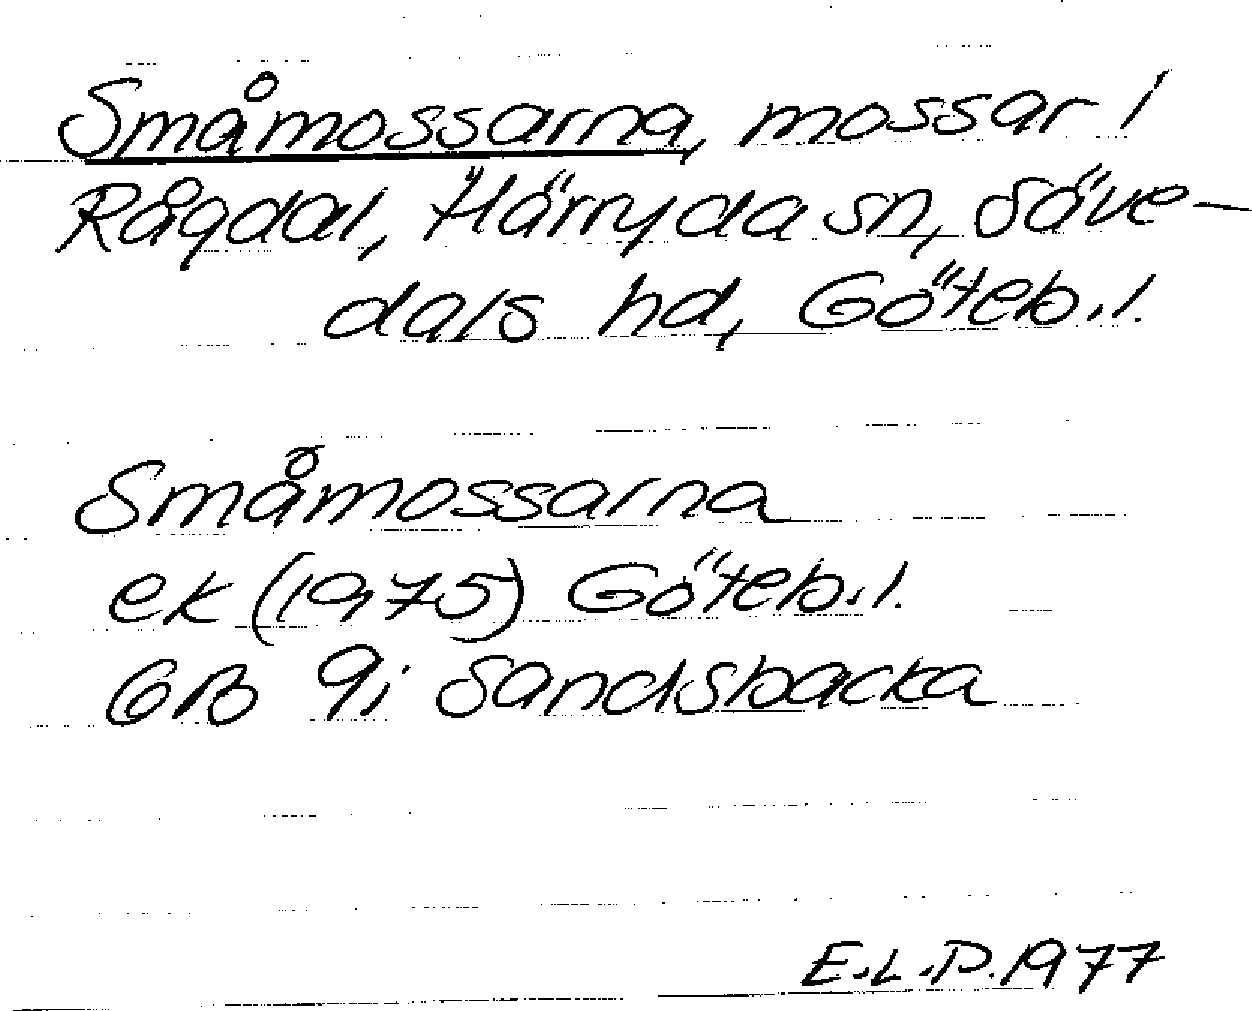 Småmossarna, mossar i
Rågdal, Härryda sn, Säve-
dals hd, Göteb.l.
Småmossarna
ek (1975) Göteb.l.
6B 9i Sandsbacka
E.L.P. 1977